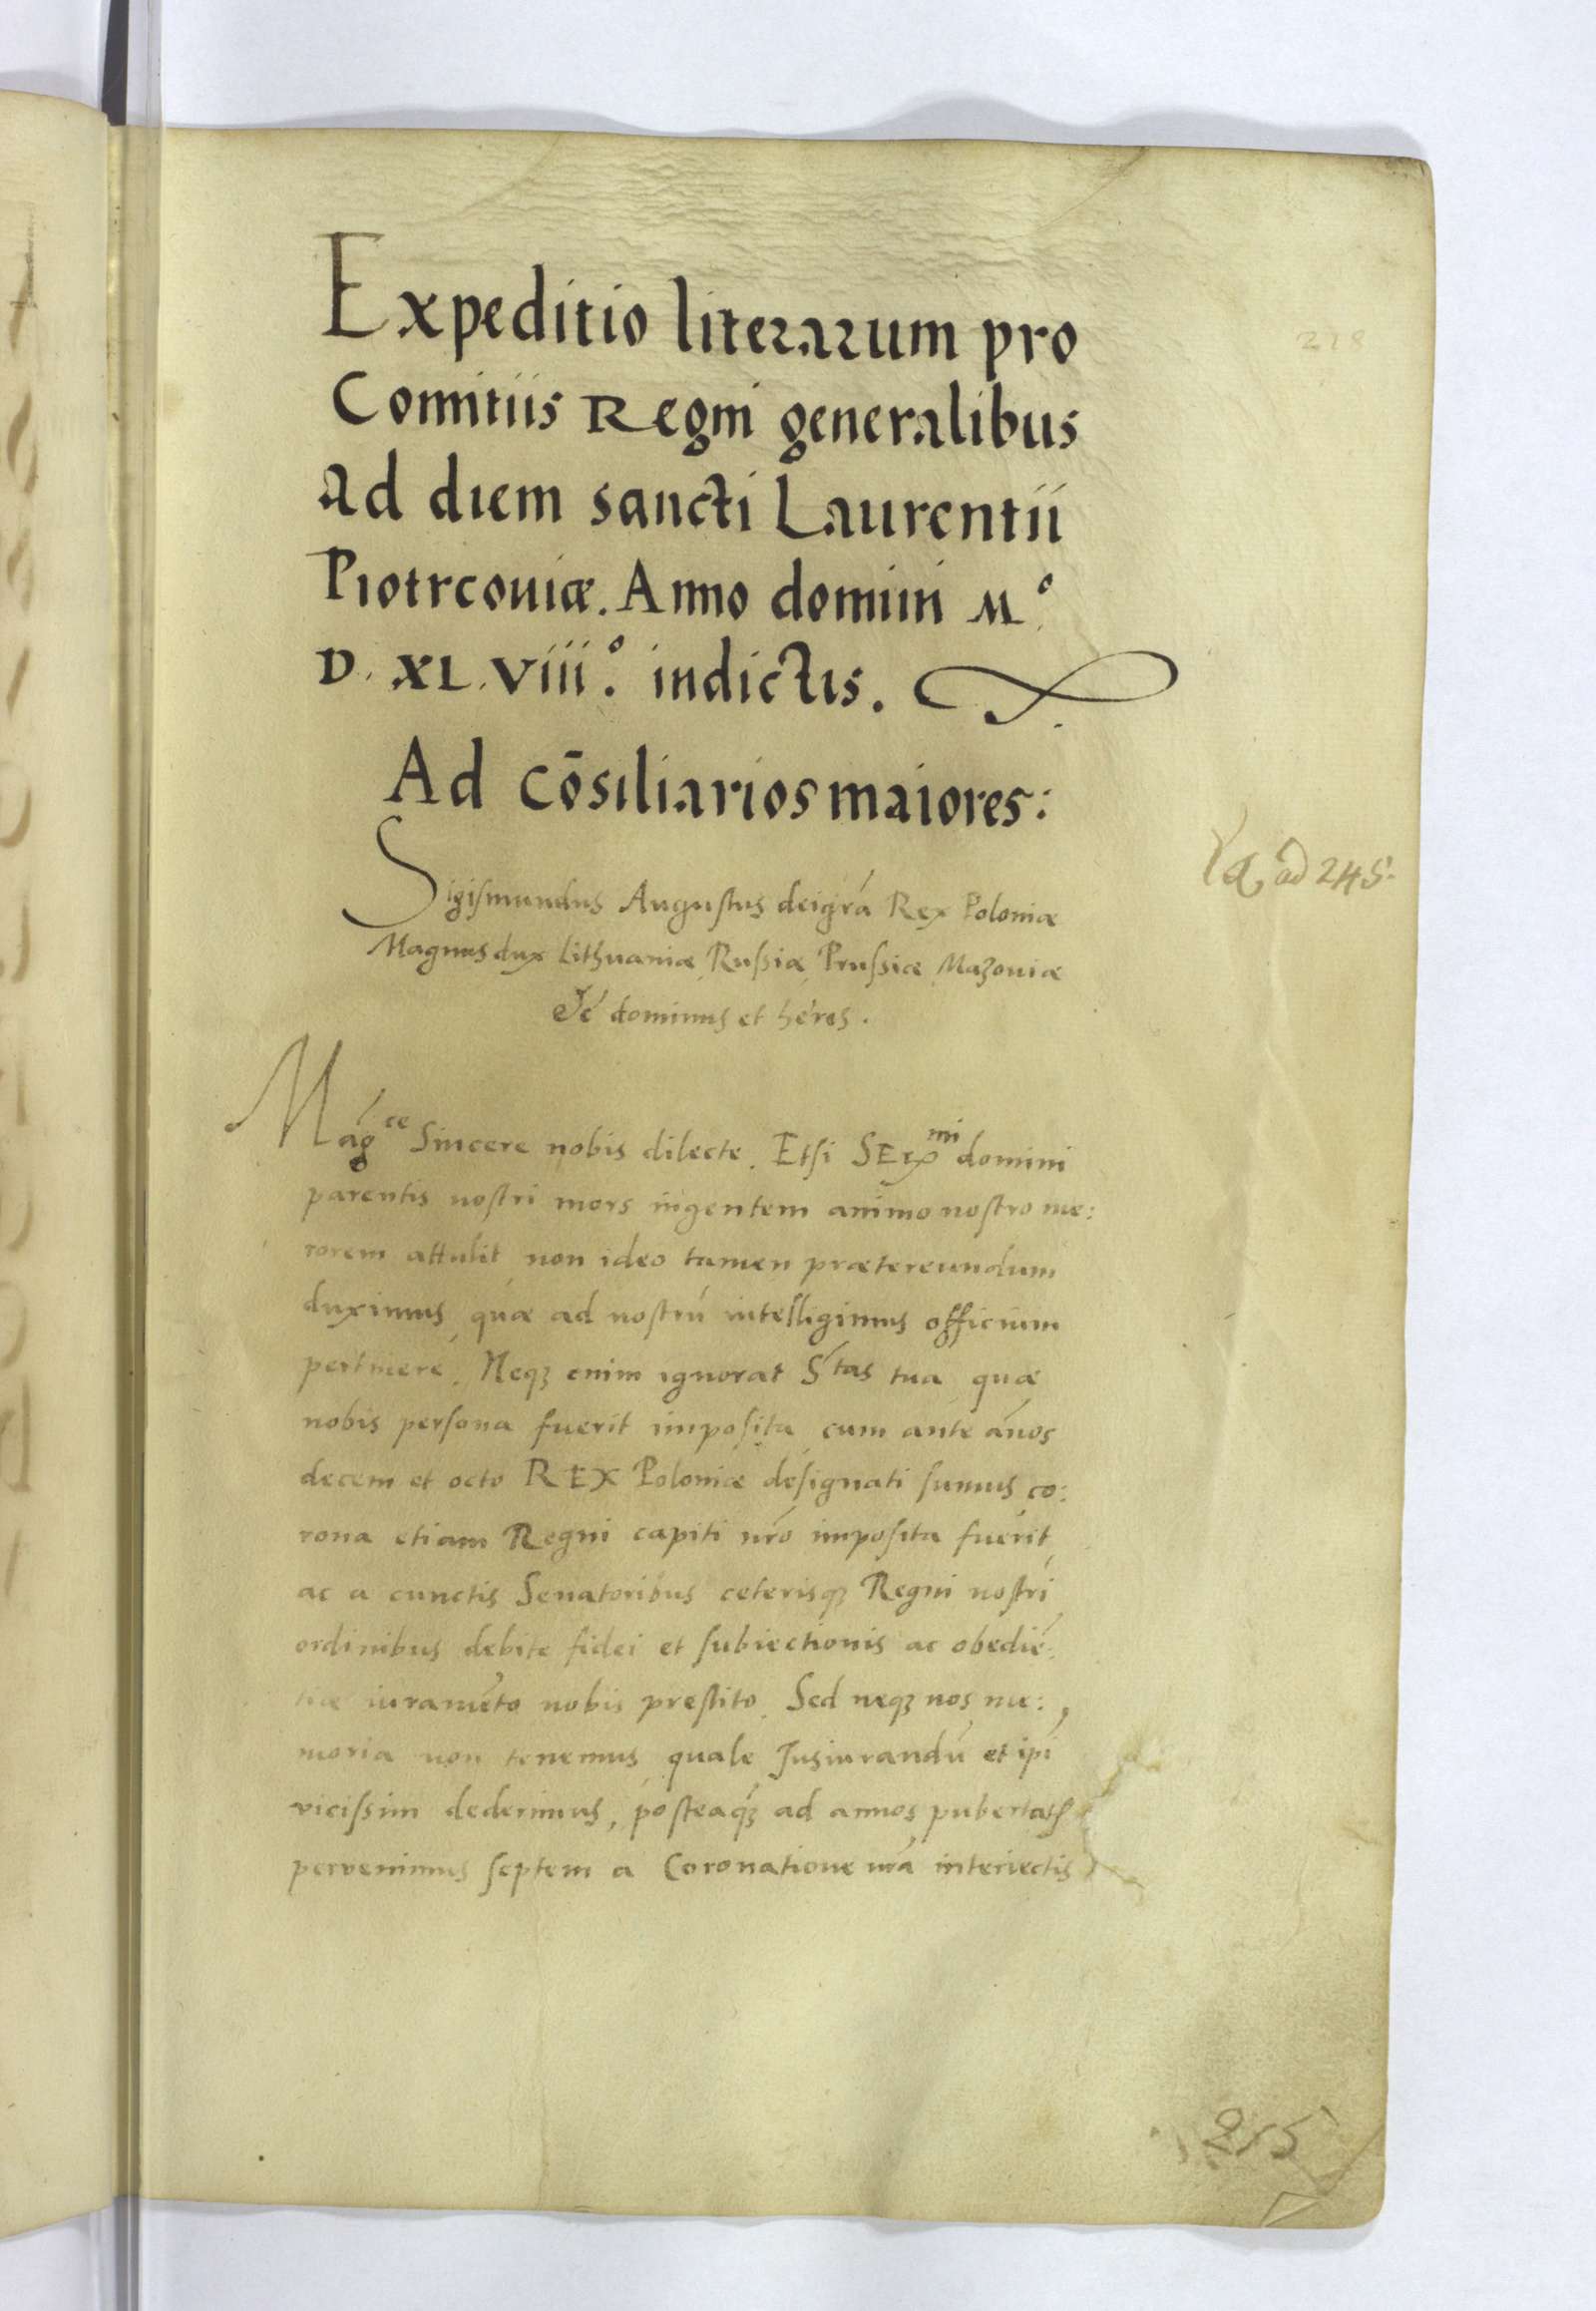 Expeditio literarum pro
Comitiis Regni generalibus
ad diem sancti Laurentii
Piotrcouiæ. Anno domini M.º
D. XL. viii.º indictis.
Ad cōsiliarios maiores:
Sigismundus Augustus deigrá Rex Poloniæ
Magnus dux Lithuaniæ, Russiæ, Prussiæ, Mazouiæ
dominus et héres.
218
ad 245.
Mágce Sincere nobis dilecte. Etsi SErmi domini
parentis nostri mors ingentem animo nostro me:
rorem attulit non ideo tamen prætereundum
duximus, quæ ad nostrú intelligimus officium
pertinere. Neqȝ enim ignorat Stas tua, quæ
nobis persona fuerit imposita, cum ante ános
decem et octo REX Poloniæ designati sumus, co:
rona etiam Regni capiti nró imposita fuerit,
ac a cunctis Senatoribus ceterisqȝ Regni nostri
ordinibus debite fidei et subiectionis ac obedié:
tiæ iuraméto nobis prestito. Sed neqȝ nos me:
moria non tenemus, quale Jusiurandú et ipí
vicissim dederimus, posteaqȝ ad annos pubertatis
pervenimus septem a Coronatione nrá interiectis
215